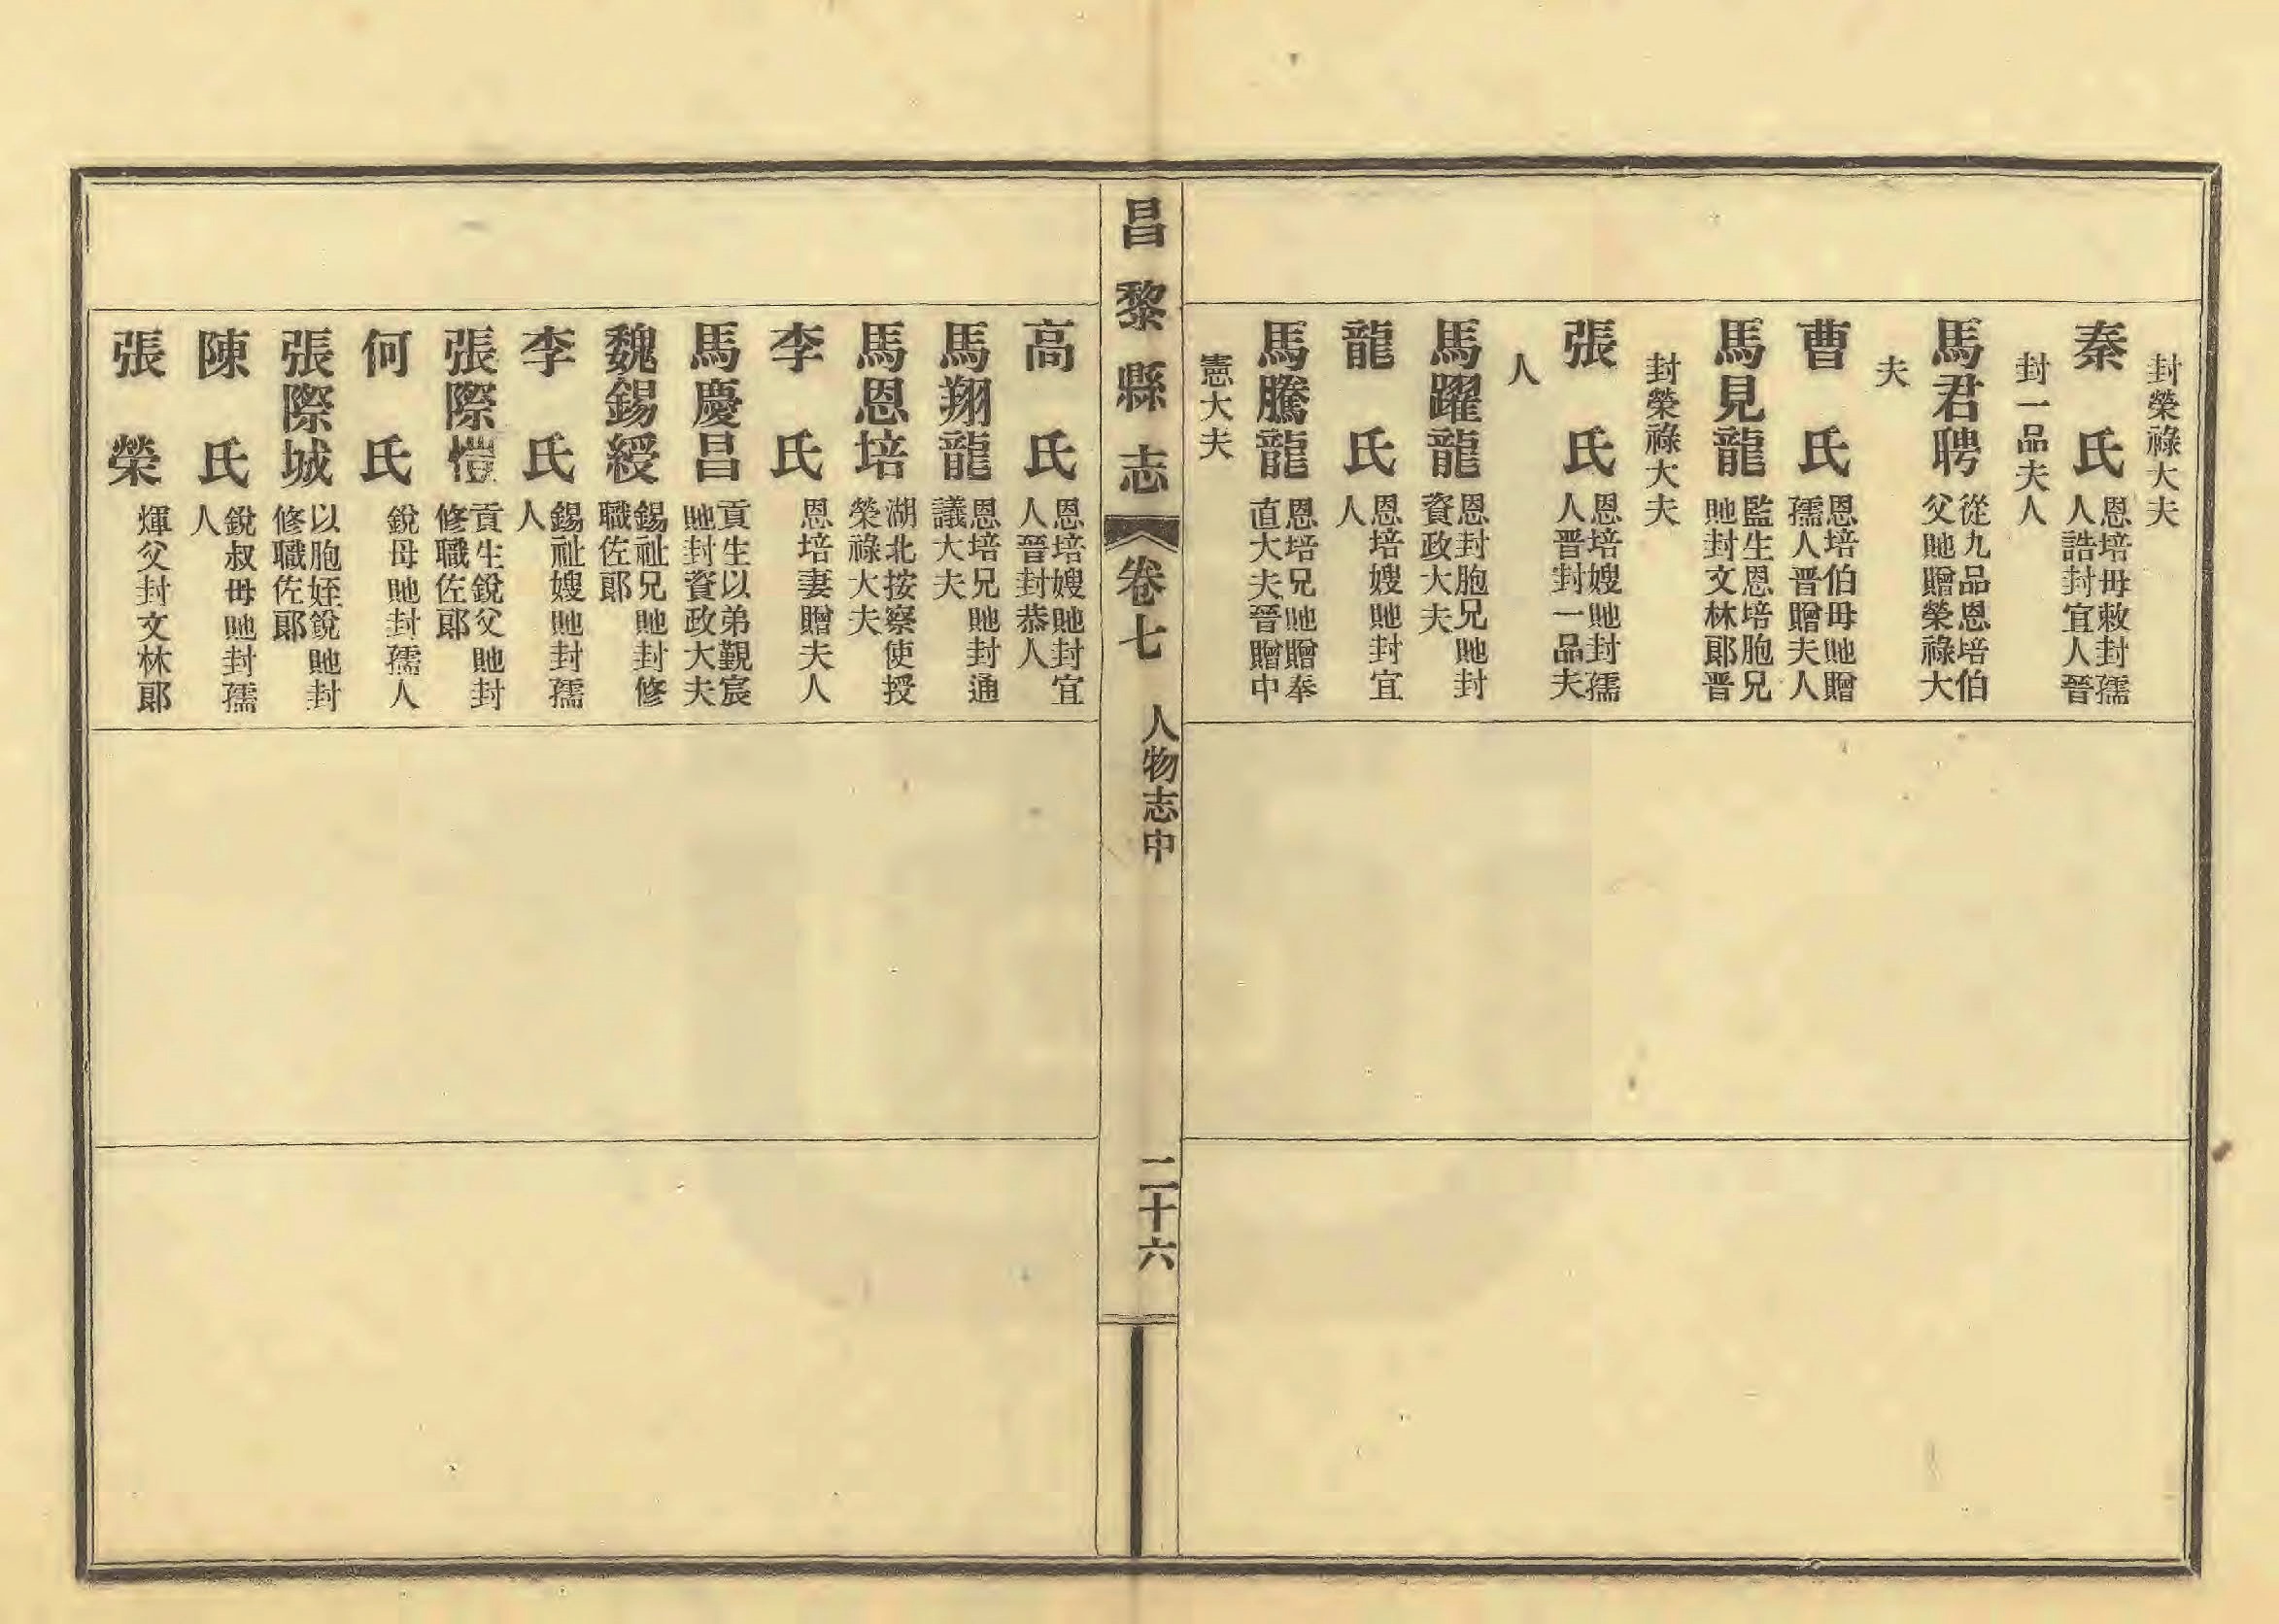 封榮祿大夫
秦氏 恩培母敕封孺
人誥封宜人晉
封一品夫人
馬君聘 從九品恩培伯
父貤贈榮祿大
夫
曹氏 恩培伯母貤贈
孺人晋贈夫人
馬見龍 監生恩培胞兄
貤封文林郞晋
封榮祿大夫
張氏 恩培嫂貤封孺
人晋封一品夫
人
馬躍龍 恩封胞兄貤封
資政大夫
龍氏 恩培嫂貤封宜
人
馬騰龍 恩培兄貤贈奉
直大夫晉贈中
憲大夫
昌黎縣志 卷七 人物志中 二十六
高氏 恩培嫂貤封宜
人晉封恭人
馬翔龍 恩培兄貤封通
議大夫
馬恩培 湖北按察使授
榮祿大夫
李氏 恩培妻贈夫人
馬慶昌 貢生以弟覲宸
貤封資政大夫
魏錫綬 錫祉兄貤封修
職佐郞
李氏 錫祉嫂貤封孺
人
張際愷 貢生銳父貤封
修職佐郞
何氏 銳母貤封孺人
張際城 以胞姪銳貤封
修職佐郞
陳氏 銳叔母貤封孺
人
張榮 煇父封文林郞